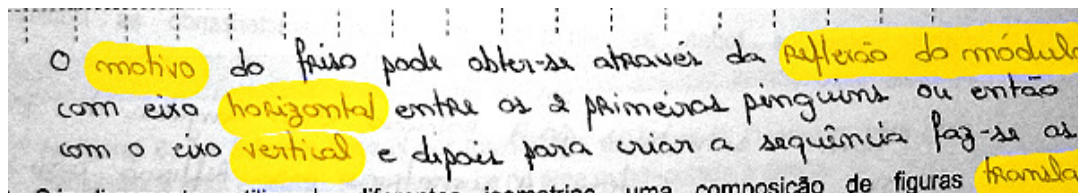 O motivo do friso pode obter-se através da reflexão do módulo
com eixo horizontal entre os 2 primeiros pinguins ou então
com o eixo vertical e depois para criar a sequência faz-se as
utilizando diferentes isometrias, uma composição de figuras transla